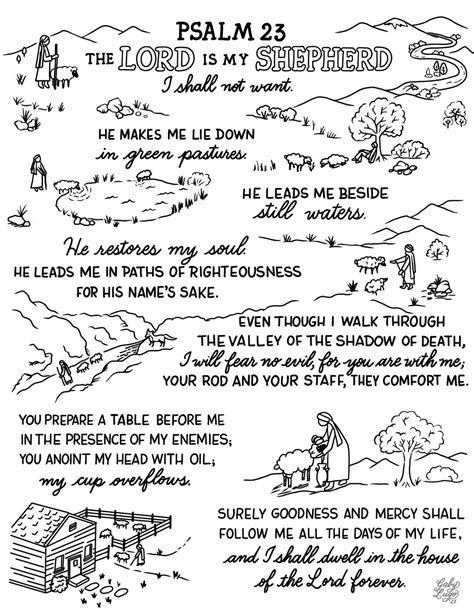 PSALM 23
THE LORD IS MY SHEPHERD
I shall not want.
HE MAKES ME LIE DOWN
in green pastures.
HE LEADS ME BESIDE
still waters.
He restores my soul.
HE LEADS ME IN PATHS OF RIGHTEOUSNESS
FOR HIS NAME'S SAKE.
EVEN THOUGH I WALK THROUGH
THE VALLEY OF THE SHADOW OF DEATH,
I will fear no evil, for you are with me;
YOUR ROD AND YOUR STAFF, THEY COMFORT ME.
YOU PREPARE A TABLE BEFORE ME
IN THE PRESENCE OF MY ENEMIES;
YOU ANOINT MY HEAD WITH OIL;
my cup overflows.
SURELY GOODNESS AND MERCY SHALL
FOLLOW ME ALL THE DAYS OF MY LIFE,
and I shall dwell in the house
of the Lord forever.
Gaby
Lugo